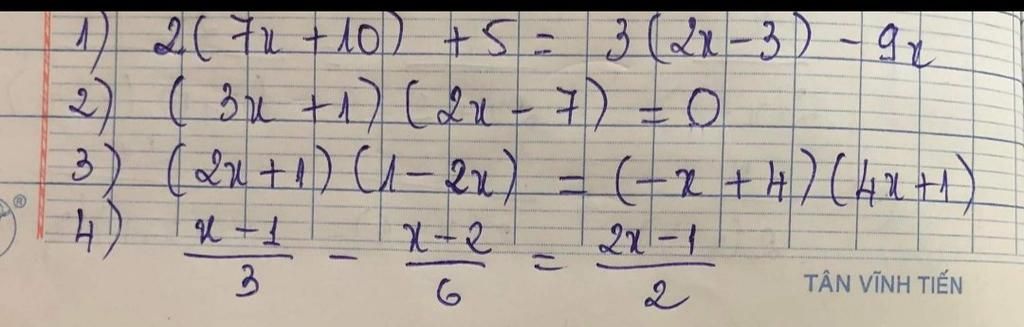 1) 2(7x+10) + 5 = 3(2x-3) - 9x
2) (3x+1)(2x-7) = 0
3) (2x+1)(1-2x) = (-x+4)(4x+1)
4) \frac{x-1}{3} - \frac{x-2}{6} = \frac{2x-1}{2}
TÂN VĨNH TIẾN
®